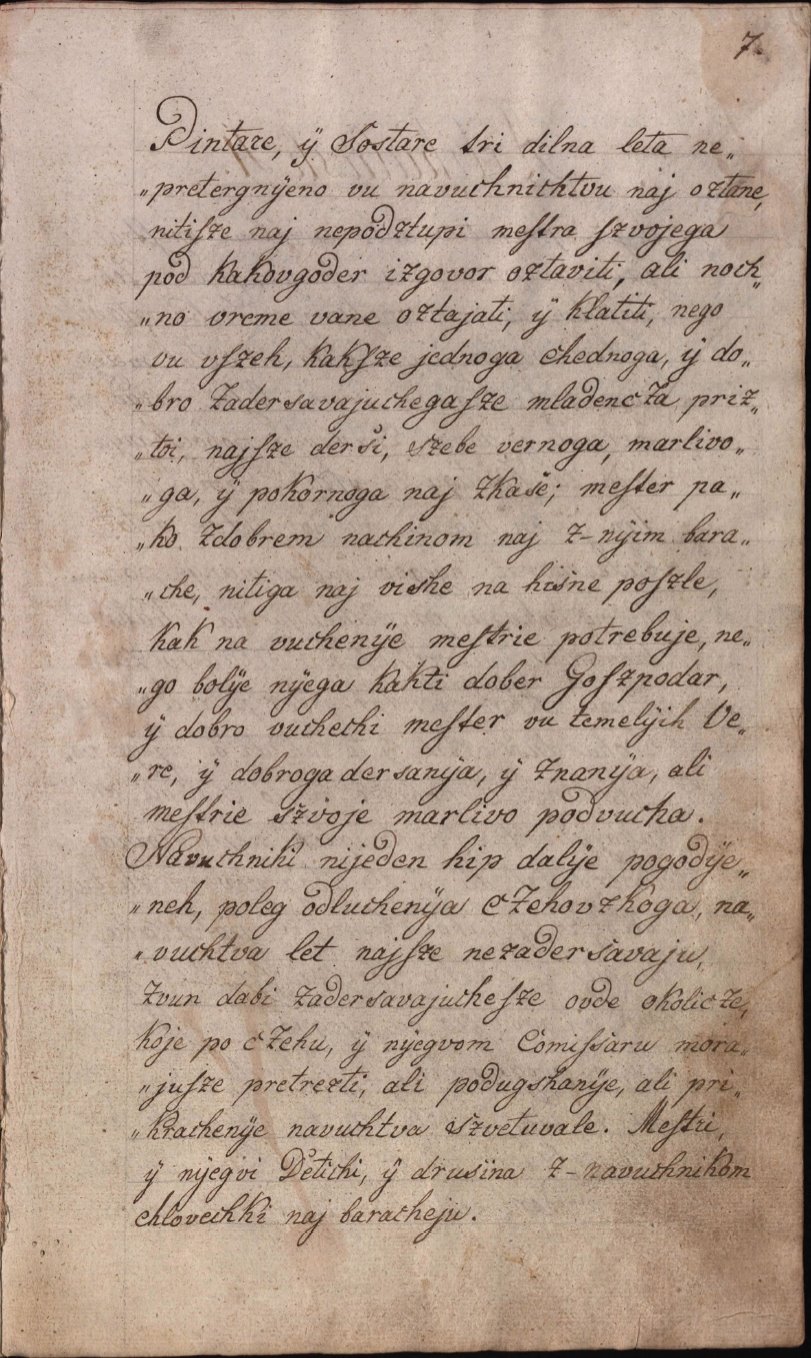 7.
Pintare, ÿ Sostare tri dilna leta ne„
„pretergnÿeno vu navuchnichtvu naj oztane,
nitisze naj nepodztupi mestra szvojega
pod kakovgoder izgovor oztaviti, ali noch„
„no vreme vane oztajati, ÿ klatiti, nego
vu vszeh, kaksze jednoga chednoga, ÿ do„
„bro zadersavajuchegasze mladencza priz„
„toi, najsze derši, szebe vernoga, marlivo„
„ga, ÿ pokornoga naj zkaše; mester pa„
„ko zdobrem nachinom naj z-nÿim bara„
„che, nitiga naj vishe na hišne poszle,
kak na vuchenÿe mestrie potrebuje, ne„
„go bolÿe nÿega kakti dober Goszpodar,
ÿ dobro vuchechi mester vu temelÿih Ve„
„re, ÿ dobroga dersanÿa, ÿ znanÿa, ali
mestrie szvoje marlivo podvucha.
Navuchniki nijeden hip dalÿe pogodÿe„
„neh, poleg odluchenÿa czehovzkoga, na„
„vuchtva let najsze nezaderšavaju,
zvun dabi zadersavajuchesze ovde okolicze,
koje po czehu, ÿ nÿegvom Comissaru mora„
„jusze pretrezti, ali podugshanÿe, ali pri„
„krachenÿe navuchtva szvetuvale. Mestri,
ÿ nÿegvi Detichi, ÿ drusina z-navuchnikom
chlovechki naj baracheju.